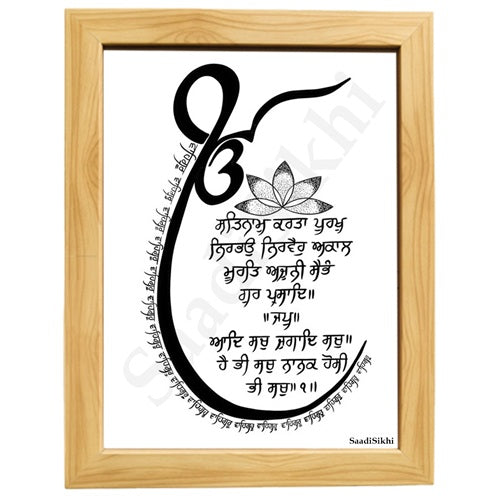 ੴ
ਸਤਿਨਾਮੁ ਕਰਤਾ ਪੁਰਖੁ
ਨਿਰਭਉ ਨਿਰਵੈਰੁ ਅਕਾਲ
ਮੂਰਤਿ ਅਜੂਨੀ ਸੈਭੰ
ਗੁਰ ਪ੍ਰਸਾਦਿ॥
॥ਜਪੁ॥
ਆਦਿ ਸਚੁ ਜੁਗਾਦਿ ਸਚੁ॥
ਹੈ ਭੀ ਸਚੁ ਨਾਨਕ ਹੋਸੀ
ਭੀ ਸਚੁ॥੧॥
ਵਾਹਿਗੁਰੂ ਵਾਹਿਗੁਰੂ ਵਾਹਿਗੁਰੂ ਵਾਹਿਗੁਰੂ ਵਾਹਿਗੁਰੂ ਵਾਹਿਗੁਰੂ ਵਾਹਿਗੁਰੂ ਵਾਹਿਗੁਰੂ ਵਾਹਿਗੁਰੂ ਵਾਹਿਗੁਰੂ ਵਾਹਿਗੁਰੂ ਵਾਹਿਗੁਰੂ ਵਾਹਿਗੁਰੂ ਵਾਹਿਗੁਰੂ ਵਾਹਿਗੁਰੂ ਵਾਹਿਗੁਰੂ
SaadiSikhi
SaadiSikhi